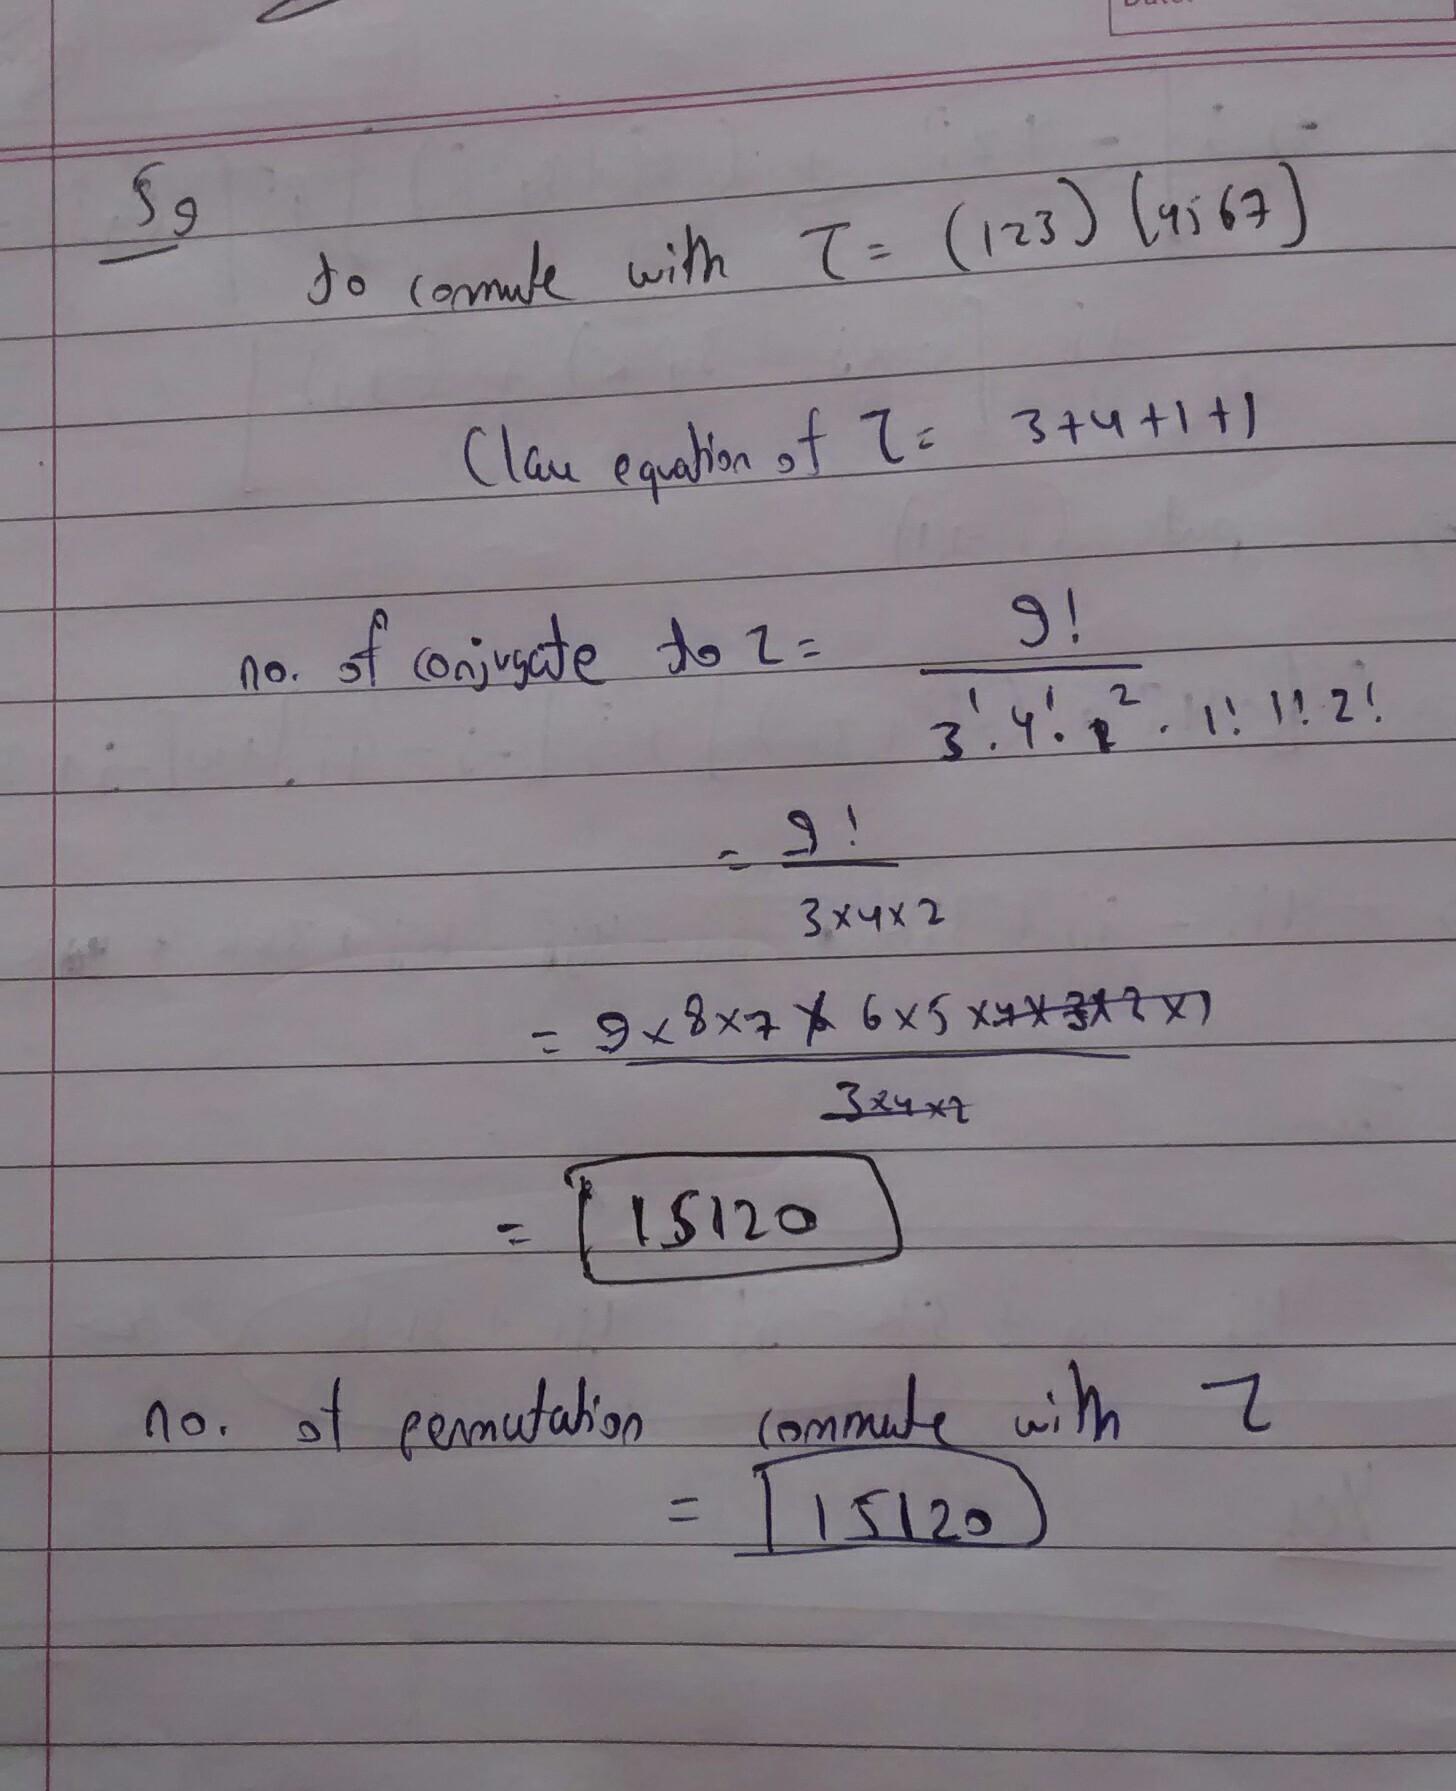 S9
to commute with τ = (123) (4567)
Class equation of τ = 3+4+1+1
no. of conjugate to τ = 9! / 3¹.4¹.1². 1! 1! 2!
= 9! / 3x4x2
= 9x8x7x6x5x4x3x2x1 / 3x4x2
= 15120
no. of permutation commute with τ
= 15120